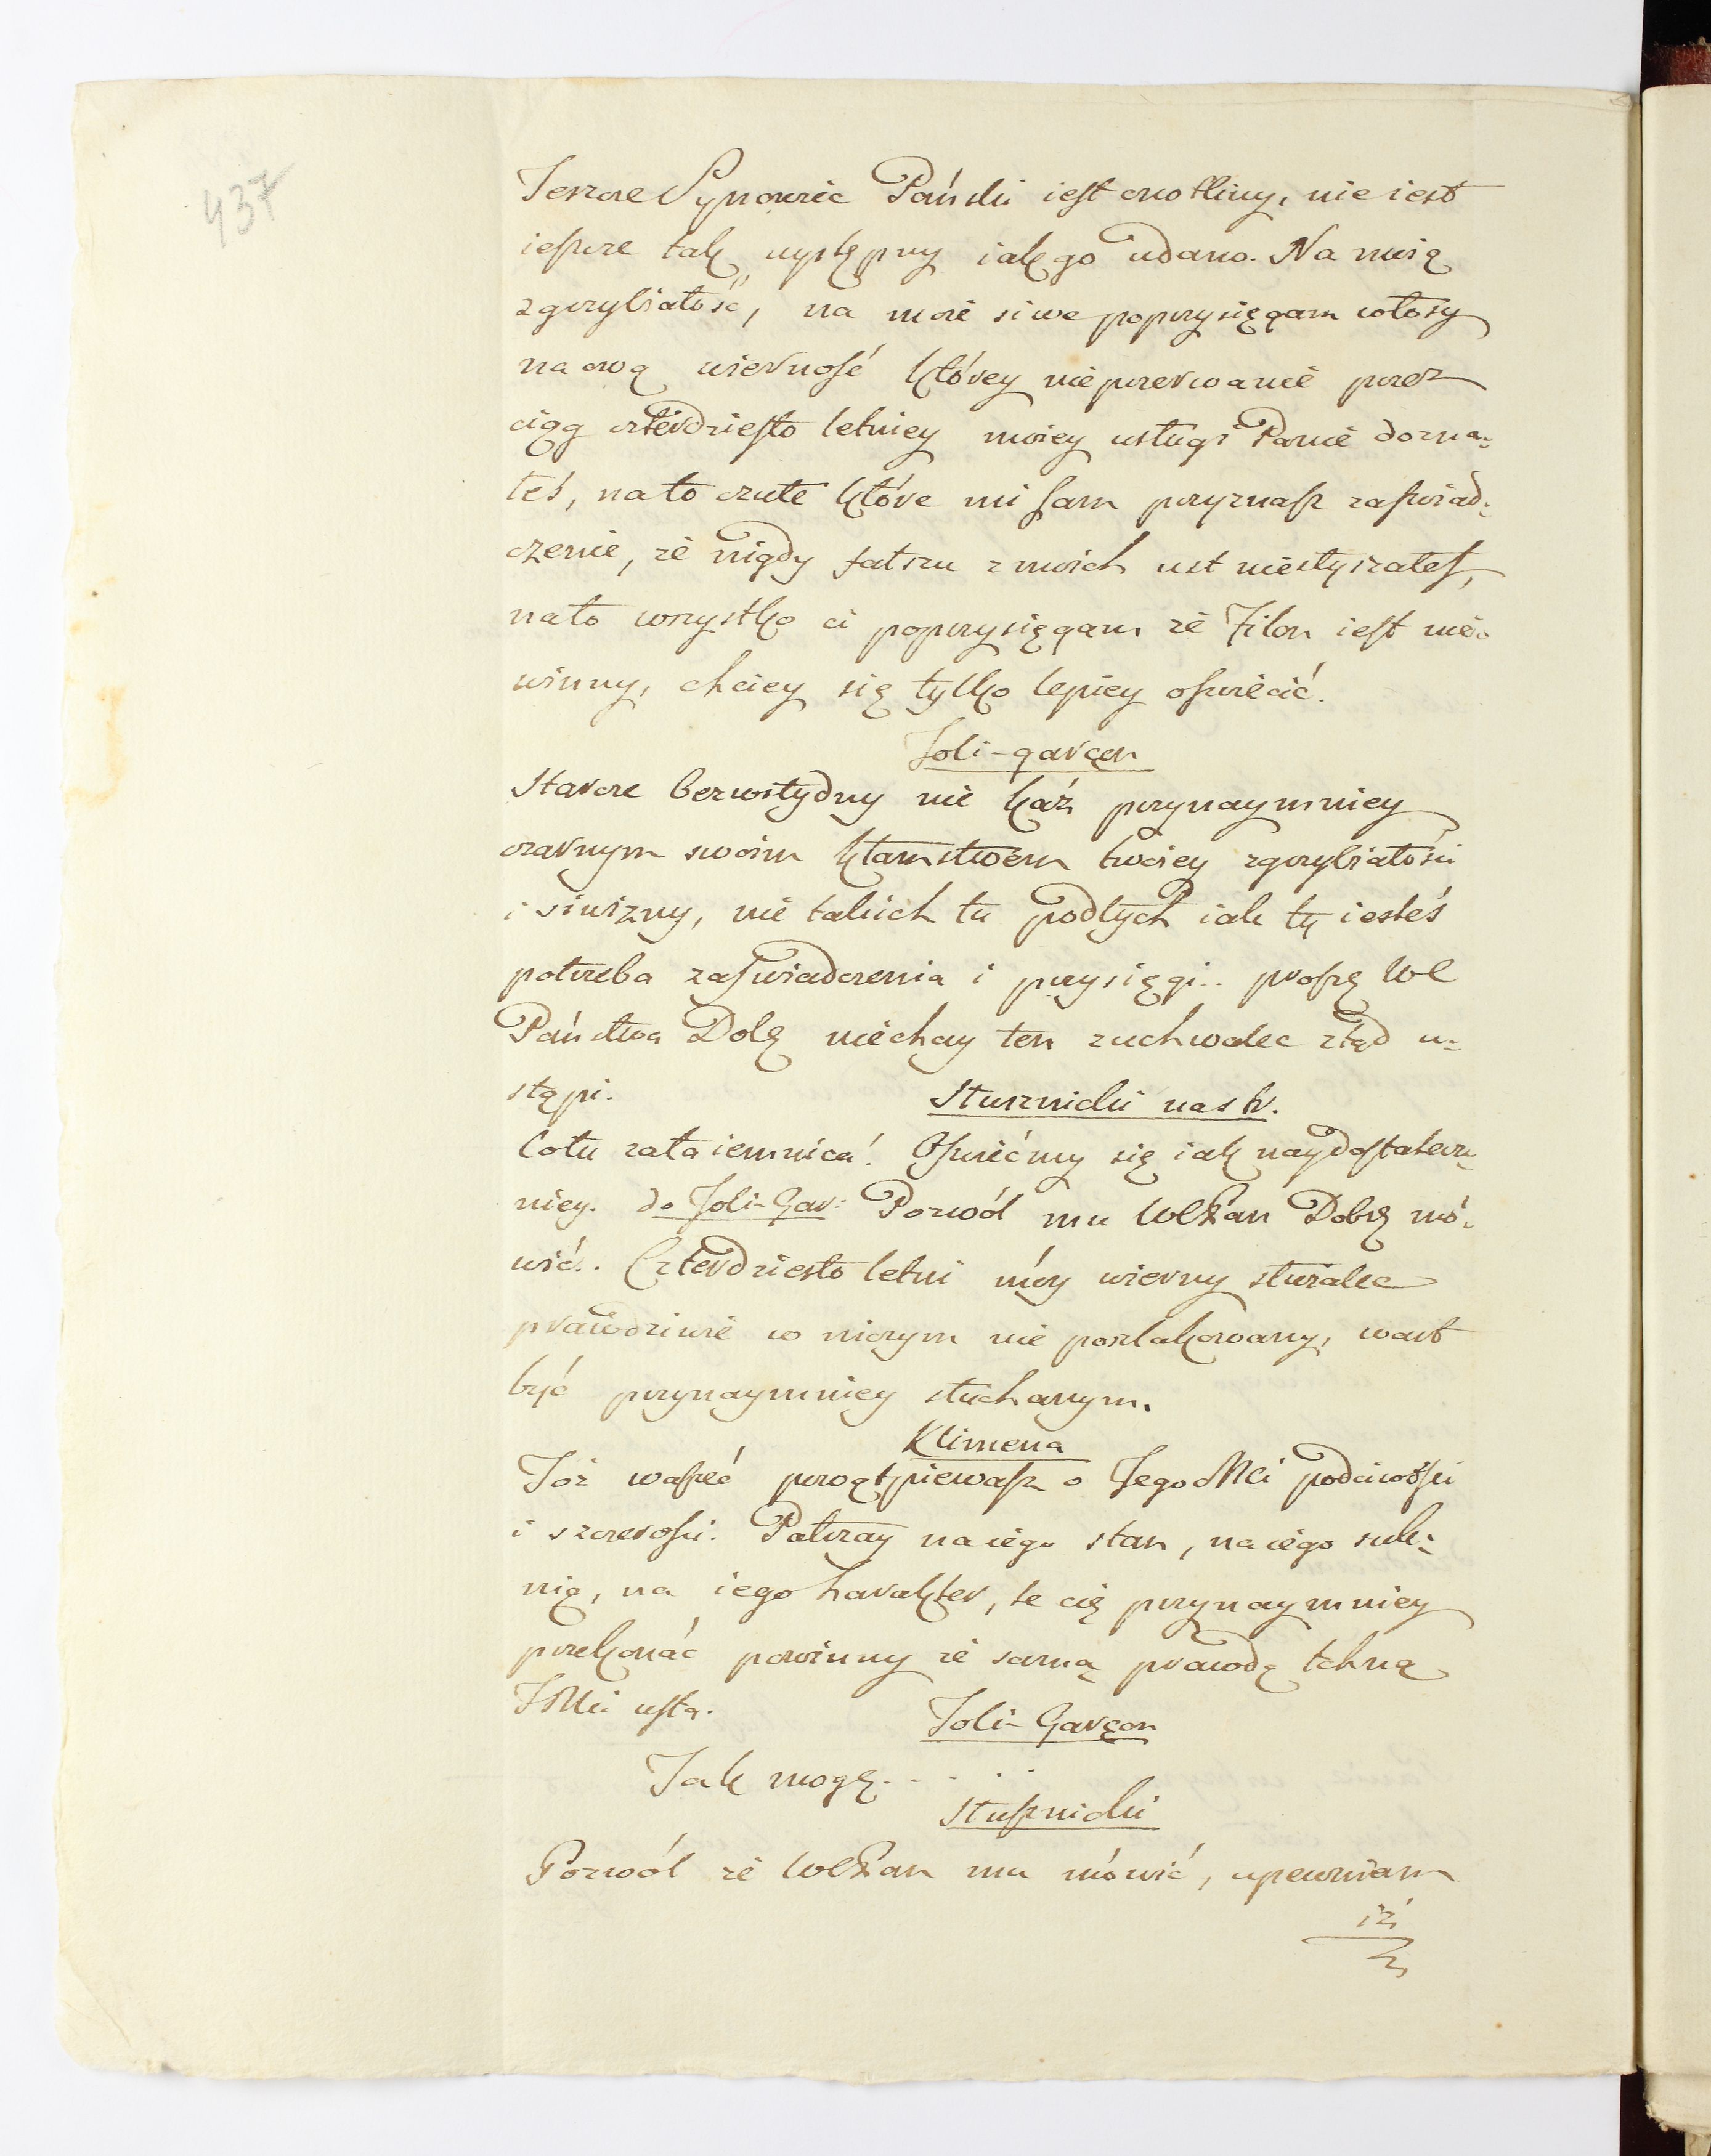 437
Jeszcze Synowic Pański iest cnotliwy, nie iest
ieszcze tak występny iak go udano. Na moię
zgrzybiałość, na moie siwe poprzysięgam włosy
na ową wierność którey nieprzerwanie przez
ciąg czterdziesto letniey moiey usługi Panie dozna-
łeś, na to czułe które mi sam przyznasz zaświad-
czenie, że nigdy fałszu z moich ust niesłyszałeś,
na to wszystko ci poprzysięgam że Filon iest nie-
winny, chciey się tylko lepiey oświecić.
Joli-garçon
Starcze bezwstydny nie każ przynaymniey
czarnym swoim kłamstwem twoiey zgrzybiałości
i siwizny, nie takich tu podłych iak ty iesteś
potrzeba zaświadczenia i przysięgi.. proszę WC
Państwa Dolę niechay ten zuchwalec ztąd u-
stąpi.
Słusznicki na str.
Cotu zataiemnica! Oświećmy się iak naydostatecz-
niey. do Joli-Gar: Pozwól mu WCPan Dobrę mó-
wić.. Czterdziesto letni móy wierny służalec
prawdziwie w niczym nie poszlakowany, wart
być przynaymniey słuchanym.
Klimena
Toż waszeć powątpiewasz o JegoMci poczciwości
i szczerości. Patrzay na iego stan, na iego suk-
nię, na iego harakter, te cię przynaymniey
przekonać powinny że samą prawdą tchną
JMci usta.
Joli-Garçon
Jak mogę. . . . .
Słusznicki
Pozwól że WCPan mu mówić, upewniam
iż